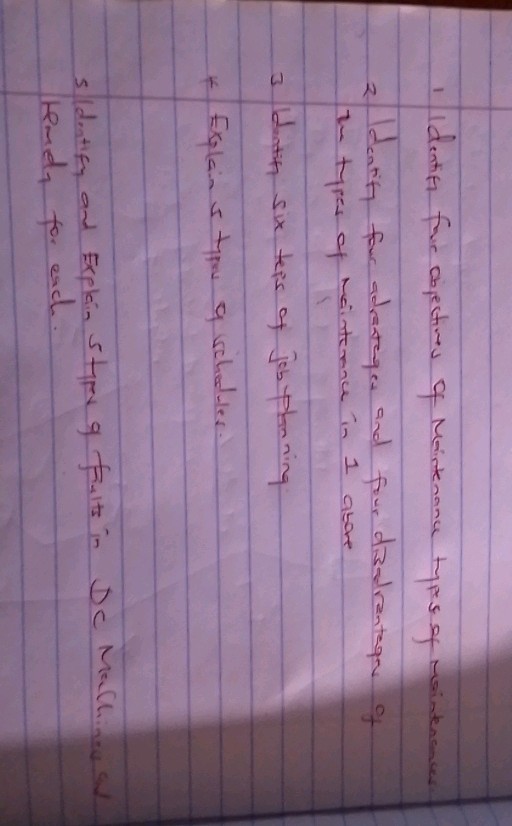 1 Identify four objectives of Maintenance types of maintenance
2 Identify four advantages and four disadvantages of
the types of maintenance in 1 above
3 Identify six teps of job planning
4 Explain 5 types of schedules.
5 Identify and Explain 5 types of faults in DC Machines and
Remedy for each.